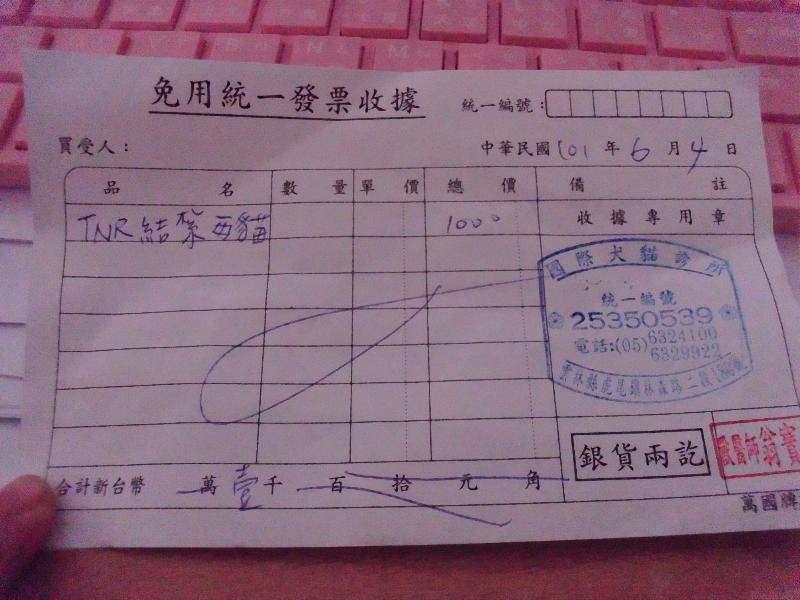 免用統一發票收據
統一編號：
買受人：
中華民國 101 年 6 月 4 日
品名 數量 單價 總價 備註
TNR結紮 母貓 1000 收據專用章
國際犬貓診所
統一編號
25350539
電話:(05)6324100
6329922
雲林縣虎尾鎮林森路二段
銀貨兩訖
獸醫師翁寶
合計新台幣 萬 壹 千 百 拾 元 角
萬國牌